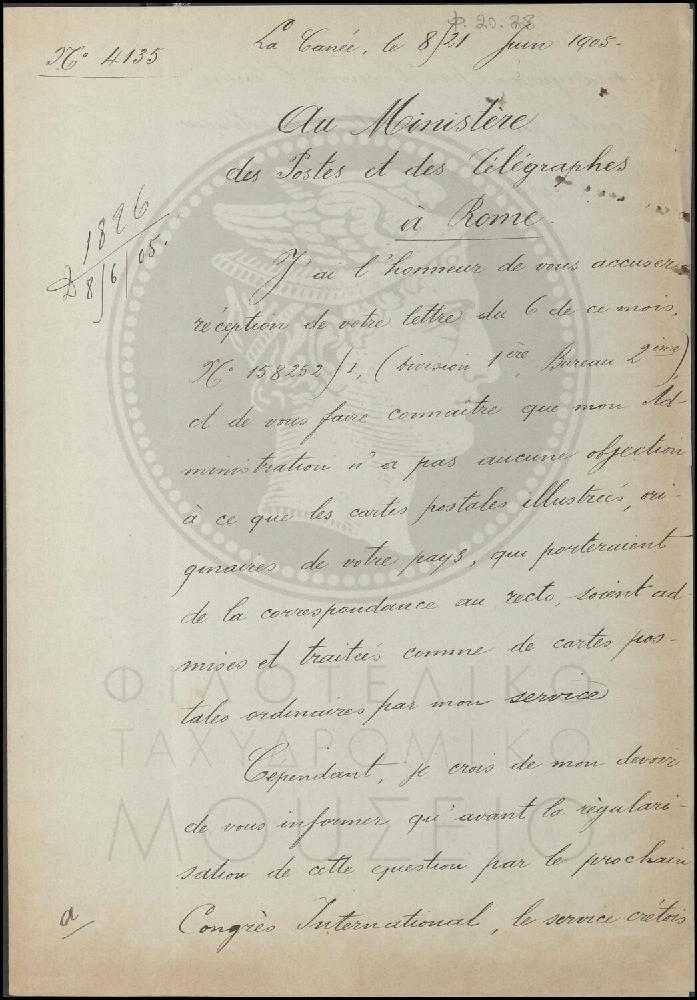 p. 20.28
N° 4135
La Canée, le 8/21 Juin 1905.
Au Ministère
des Postes et des Télégraphes
à Rome.
1826
D 8/6/05.
J'ai l'honneur de vous accuser
réception de votre lettre du 6 de ce mois,
N° 158252/I, (division 1ère, Bureau 2ème),
et de vous faire connaître que mon Ad-
ministration n'a pas aucune objection
à ce que les cartes postales illustrées, ori-
ginaires de votre pays, qui porteraient
de la correspondance au recto, soient ad-
mises et traitées comme de cartes pos-
tales ordinaires par mon service
Cependant, je crois de mon devoir
de vous informer qu'avant la régulari-
sation de cette question par le prochain
Congrès International, le service crétois
a
ΦΙΛΟΤΕΛΙΚΟ
ΤΑΧΥΔΡΟΜΙΚΟ
ΜΟΥΣΕΙΟ